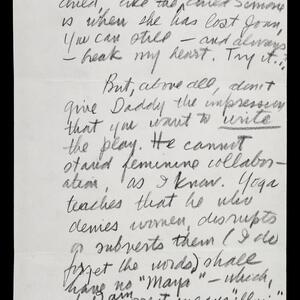 child, like the child Simone
is when she has lost Joan,
You can still – and always
– break my heart. Try it..
But, above all, don't
give Daddy the impression
that you want to write
the play. He cannot
stand feminine collabor-
ation, as I know. Yoga
teaches that he who
denies women, disrupts
or subverts them (I do
forget the words) shall
have no "Maya" – which,
I am